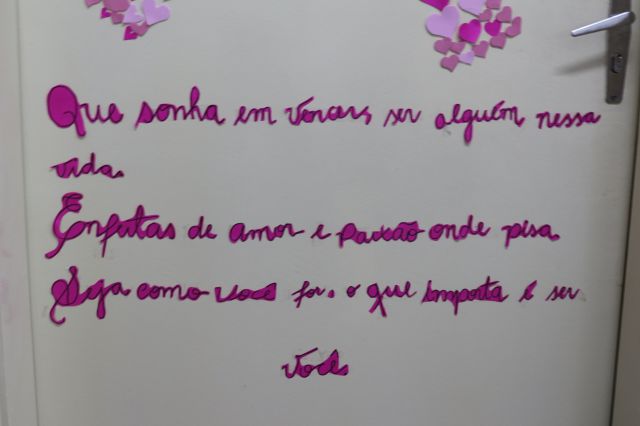 Que sonha em vencer, ser alguém nessa
vida.
Enfeitas de amor e paixão onde pisa
Seja como você for, o que importa é ser
você.